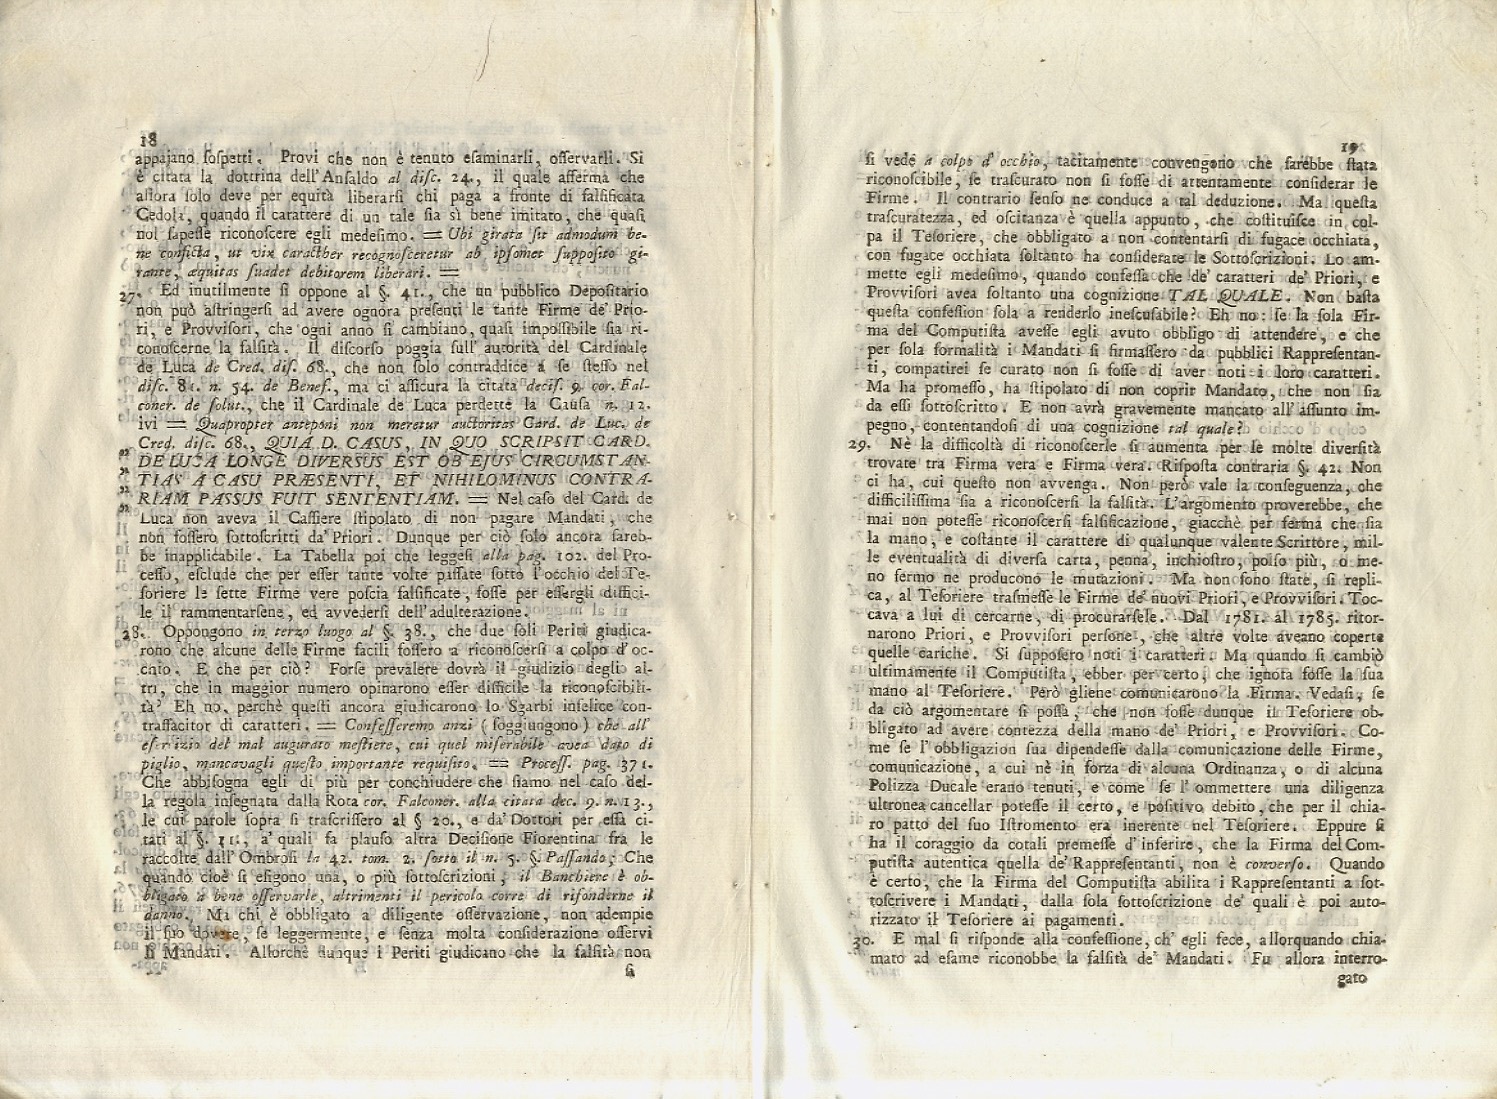 18
appajano ſoſpetti. Provi che non è tenuto eſaminarli, oſſervarli. Si
è citata la dottrina dell'Anſaldo al diſc. 24., il quale afferma che
allora ſolo deve per equità liberarſi chi paga a fronte di falſificata
Cedola, quando il carattere di un tale ſia sì bene imitato, che quaſi
nol ſapeſſe riconoſcere egli medeſimo. = Ubi girata ſit admodum be-
ne conficta, ut vix caracther recognoſceretur ab ipſomet ſuppoſito gi-
rante, æquitas ſuadet debitorem liberari. =
27. Ed inutilmente ſi oppone al §. 41., che un pubblico Depoſitario
non può aſtringerſi ad avere ognora preſenti le tante Firme de' Prio-
ri, e Provviſori, che ogni anno ſi cambiano, quaſi impoſſibile ſia ri-
conoſcerne la falſità. Il diſcorſo poggia ſull' autorità del Cardinale
de Luca de Cred. diſ. 68., che non ſolo contraddice a ſe ſteſſo nel
diſc. 81. n. 54. de Benef., ma ci aſſicura la citata deciſ. 9. cor. Fal-
coner. de ſolut., che il Cardinale de Luca perdette la Cauſa n. 12.
ivi = Quapropter anteponi non meretur auctoritas Card. de Luc. de
Cred. diſc. 68., QUIA D. CASUS, IN QUO SCRIPSIT CARD.
" DE LUCA LONGE DIVERSUS EST OB EJUS CIRCUMSTAN-
" TIAS A CASU PRÆSENTI, ET NIHILOMINUS CONTRA-
" RIAM PASSUS FUIT SENTENTIAM. = Nel caſo del Card. de
" Luca non aveva il Caſſiere ſtipolato di non pagare Mandati, che
non foſſero ſottoſcritti da' Priori. Dunque per ciò ſolo ancora ſareb-
be inapplicabile. La Tabella poi che leggeſi alla pag. 102. del Pro-
ceſſo, eſclude che per eſſer tante volte paſſate ſotto l'occhio del Te-
ſoriere le ſette Firme vere poſcia falſificate, foſſe per eſſergli diffici-
le il rammentarſene, ed avvederſi dell'adulterazione.
28. Oppongono in terzo luogo al §. 38., che due ſoli Periti giudica-
rono che alcune delle Firme facili foſſero a riconoſcerſi a colpo d'oc-
chio. E che per ciò? Forſe prevalere dovrà il giudizio degli al-
tri, che in maggior numero opinarono eſſer difficile la riconoſcibili-
tà? Eh no. perchè queſti ancora giudicarono lo Sgarbi infelice con-
traffacitor di caratteri. = Confeſſeremo anzi (ſoggiungono) che all'
eſercizio del mal augurato meſtiere, cui quel miſerabile avea dato di
piglio, mancavagli queſto importante requiſito. = Proceſſ. pag. 371.
Che abbiſogna egli di più per conchiudere che ſiamo nel caſo del-
la regola inſegnata dalla Rota cor. Falconer. alla citata dec. 9. n. 13.,
le cui parole ſopra ſi traſcriſſero al § 20., e da' Dottori per eſſa ci-
tati al §. 11., a' quali fa plauſo altra Deciſione Fiorentina fra le
raccolte dall'Ombroſi la 42. tom. 2. ſotto il n. 5. §. Paſſando; Che
quando cioè ſi eſigono una, o più ſottoſcrizioni, il Banchiere è ob-
bligato a bene oſſervarle, altrimenti il pericolo corre di rifonderne il
danno. Ma chi è obbligato a diligente oſſervazione, non adempie
il ſuo dovere, ſe leggermente, e ſenza molta conſiderazione oſſervi
li Mandati. Allorchè dunque i Periti giudicano che la falſità non
ſi
19
ſi vede a colpo d'occhio, tacitamente convengono che ſarebbe ſtata
riconoſcibile, ſe traſcurato non ſi foſſe di attentamente conſiderar le
Firme. Il contrario ſenſo ne conduce a tal deduzione. Ma queſta
traſcuratezza, ed oſcitanza è quella appunto, che coſtituiſce in col-
pa il Teſoriere, che obbligato a non contentarſi di fugace occhiata,
con fugace occhiata ſoltanto ha conſiderate le Sottoſcrizioni. Lo am-
mette egli medeſimo, quando confeſſa che de' caratteri de' Priori, e
Provviſori avea ſoltanto una cognizione TAL QUALE. Non baſta
queſta confeſſion ſola a renderlo ineſcuſabile? Eh no: ſe la ſola Fir-
ma del Computiſta aveſſe egli avuto obbligo di attendere, e che
per ſola formalità i Mandati ſi firmaſſero da pubblici Rappreſentan-
ti, compatirei ſe curato non ſi foſſe di aver noti i loro caratteri.
Ma ha promeſſo, ha ſtipolato di non coprir Mandato, che non ſia
da eſſi ſottoſcritto. E non avrà gravemente mancato all'aſſunto im-
pegno, contentandoſi di una cognizione tal quale?
29. Nè la difficoltà di riconoſcerle ſi aumenta per le molte diverſità
trovate tra Firma vera e Firma vera. Riſpoſta contraria §. 42. Non
ci ha, cui queſto non avvenga. Non però vale la conſeguenza, che
difficiliſſima ſia a riconoſcerſi la falſità. L'argomento proverebbe, che
mai non poteſſe riconoſcerſi falſificazione, giacchè per ferma che ſia
la mano, e coſtante il carattere di qualunque valente Scrittore, mil-
le eventualità di diverſa carta, penna, inchioſtro, polſo più, o me-
no fermo ne producono le mutazioni. Ma non ſono ſtate, ſi repli-
ca, al Teſoriere traſmeſſe le Firme de' nuovi Priori, e Provviſori. Toc-
cava a lui di cercarne, di procurarſele. Dal 1781. al 1785. ritor-
narono Priori, e Provviſori perſone, che altre volte aveano coperte
quelle cariche. Si ſuppoſero noti i caratteri. Ma quando ſi cambiò
ultimamente il Computiſta, ebber per certo, che ignota foſſe la ſua
mano al Teſoriere. Però gliene comunicarono la Firma. Vedaſi, ſe
da ciò argomentare ſi poſſa, che non foſſe dunque il Teſoriere ob-
bligato ad avere contezza della mano de' Priori, e Provviſori. Co-
me ſe l'obbligazion ſua dipendeſſe dalla comunicazione delle Firme,
comunicazione, a cui nè in forza di alcuna Ordinanza, o di alcuna
Polizza Ducale erano tenuti, e come ſe l'ommettere una diligenza
ultronea cancellar poteſſe il certo, e poſitivo debito, che per il chia-
ro patto del ſuo Iſtromento era inerente nel Teſoriere. Eppure ſi
ha il coraggio da cotali premeſſe d'inferire, che la Firma del Com-
putiſta autentica quella de' Rappreſentanti, non è converſo. Quando
è certo, che la Firma del Computiſta abilita i Rappreſentanti a ſot-
toſcrivere i Mandati, dalla ſola ſottoſcrizione de' quali è poi auto-
rizzato il Teſoriere ai pagamenti.
30. E mal ſi riſponde alla confeſſione, ch' egli fece, allorquando chia-
mato ad eſame riconobbe la falſità de' Mandati. Fu allora interro-
gato